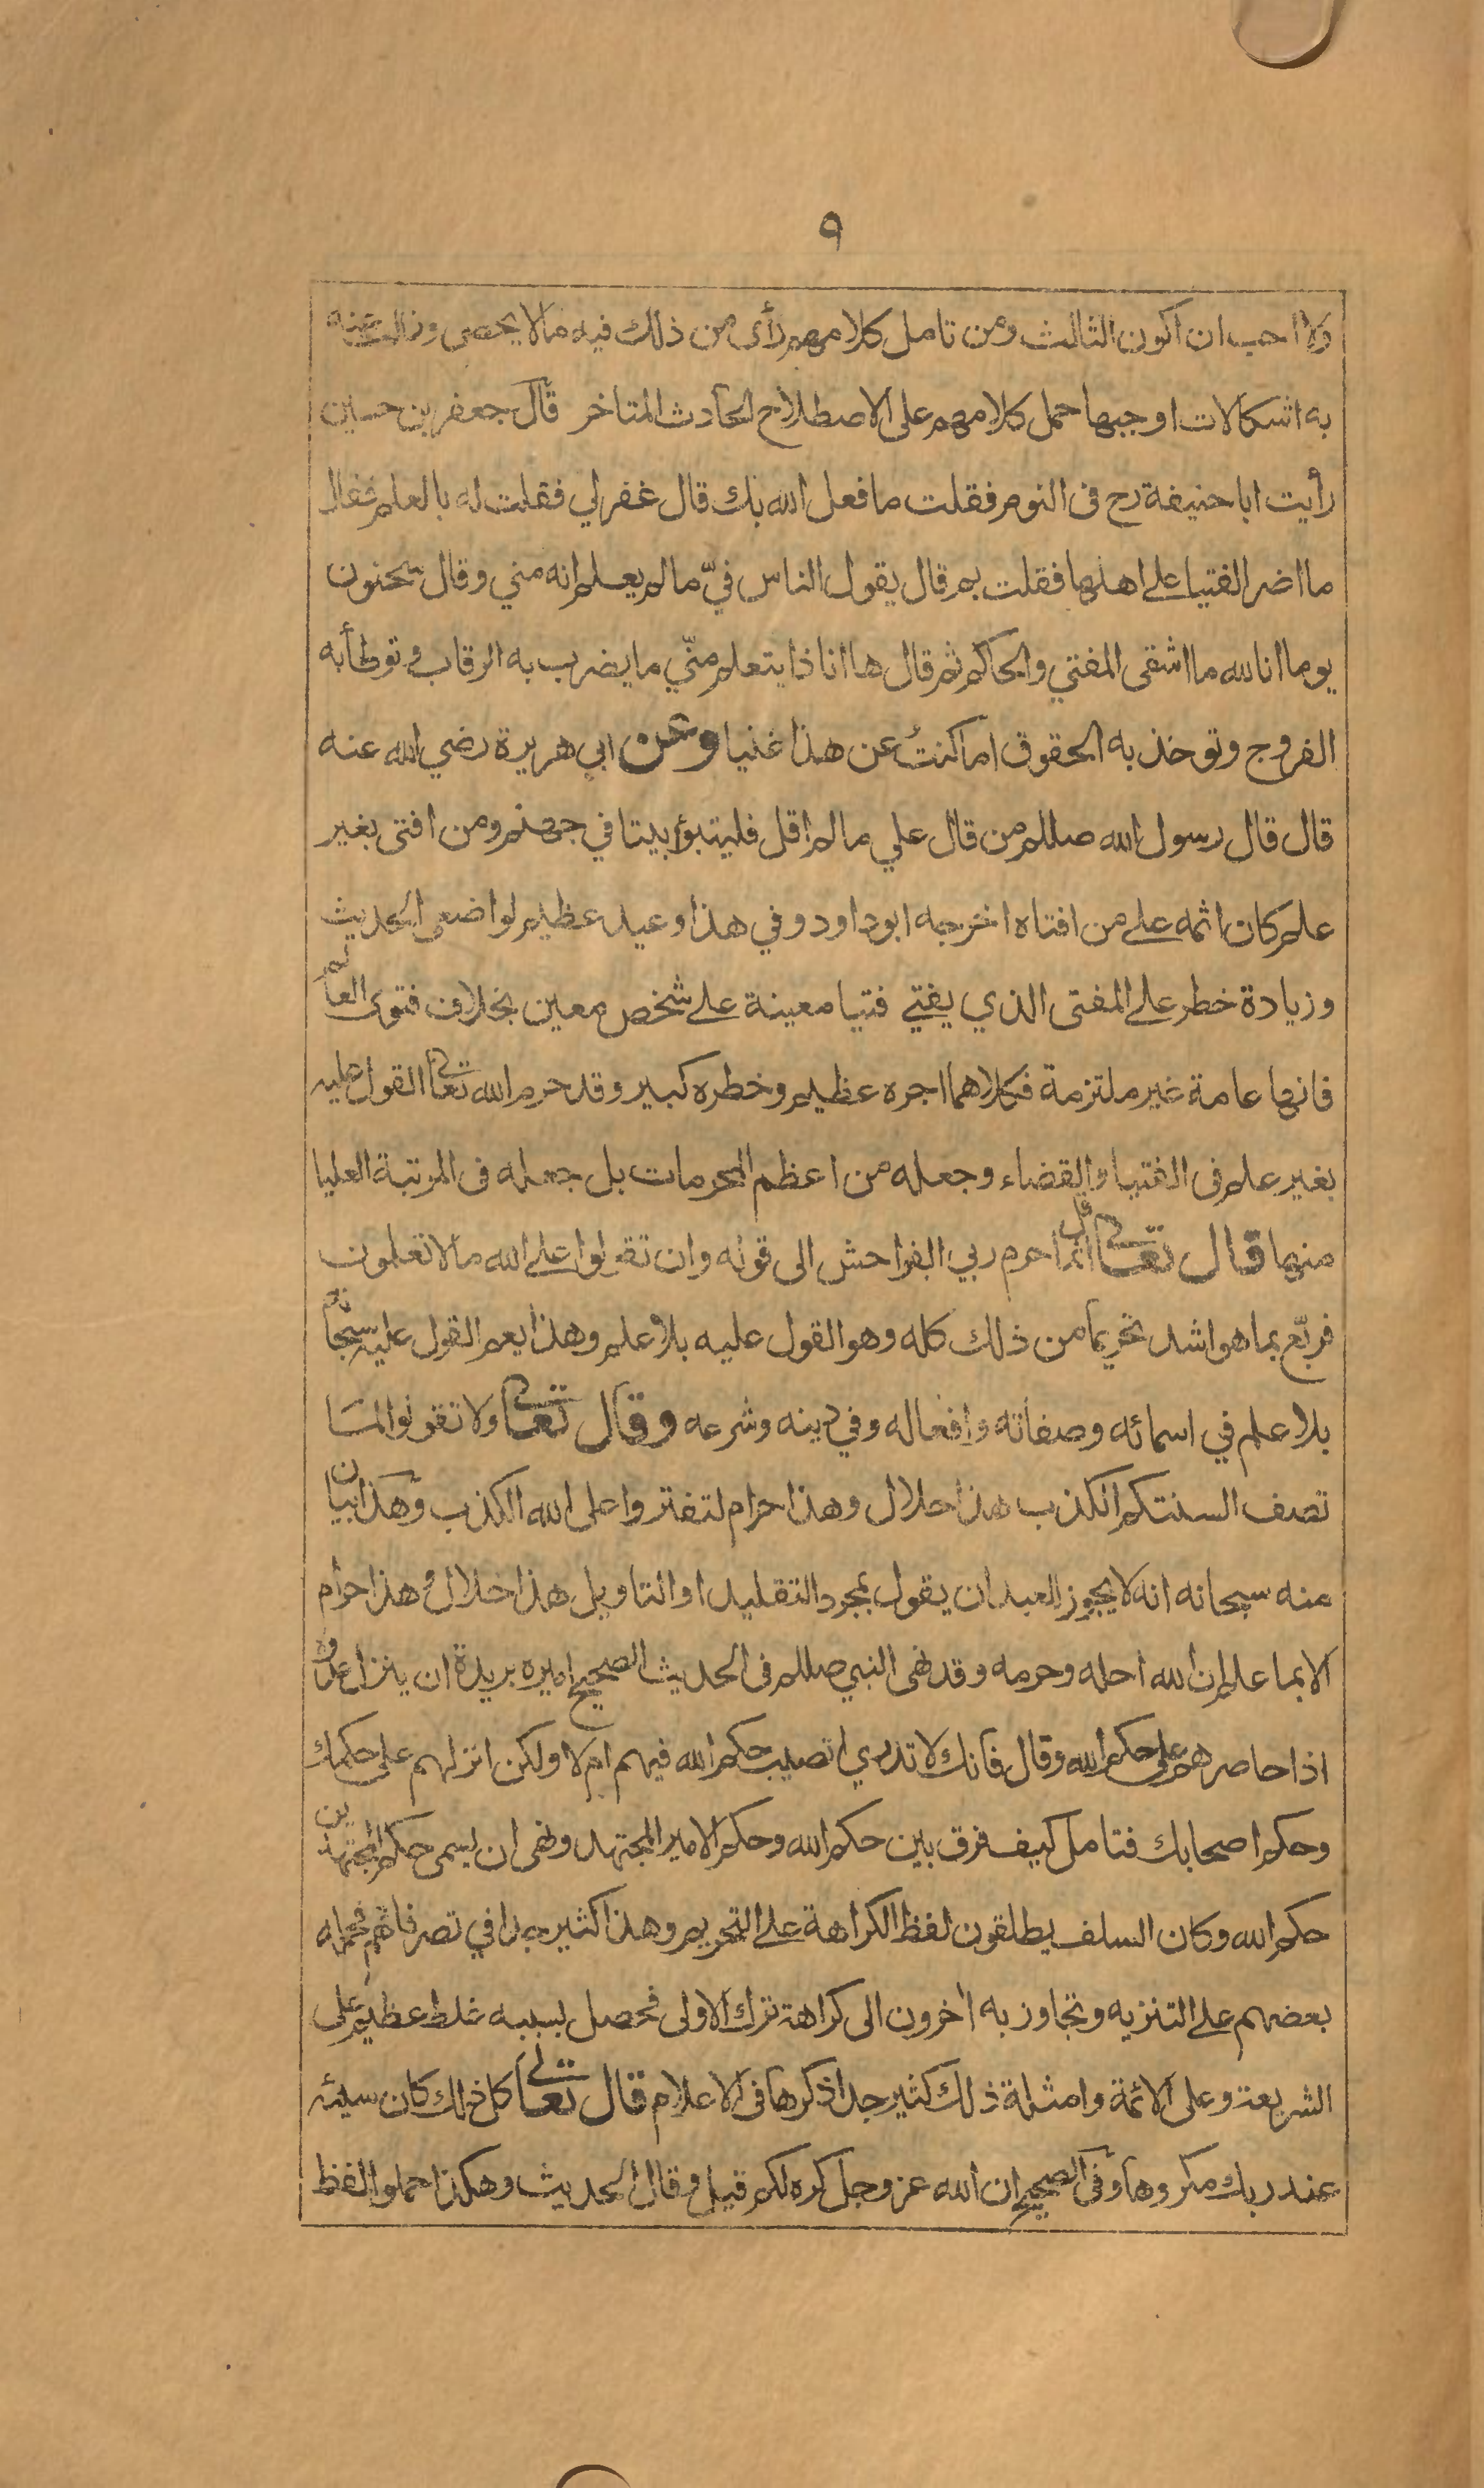 ٩
ولا احب ان اكون الثالث ومن تامل كلامهم رأى من ذلك فيه مالا يحصى وزالت عنه
به اشكالات اوجبها حمل كلامهم على الاصطلاح الحادث المتاخر قال جعفر بن حسين
رأيت ابا حنيفة رح فى النوم فقلت ما فعل الله بك قال غفر لي فقلت له بالعلم فقال
ما اضر الفتيا على اهلها فقلت بم قال يقول الناس فيّ ما لم يعلم انه مني وقال سحنون
يوما انا لله ما اشقى المفتي والحاكم ثم قال ها انا ذا يتعلم منّي ما يضرب به الرقاب وتوطأ به
الفروج وتوخذ به الحقوق اما كنتُ عن هذا غنيا وعن ابي هريرة رضي الله عنه
قال قال رسول الله صللم من قال علي ما لم اقل فليتبؤ بيتا في جهنم ومن افتى بغير
علم كان اثمه على من افتاه اخرجه ابو داود وفي هذا وعيد عظيم لواضعى الحديث
وزيادة خطر على المفتى الذي يفتي فتيا معينة على شخص معين بخلاف فتوى العالم
فانها عامة غير ملتزمة فكلاهما اجره عظيم وخطره كبير وقد حرم الله تعالى القول عليه
بغير علم فى الفتيا والقضاء وجعله من اعظم المحرمات بل جعله فى المرتبة العليا
منها قال تعالى قل انما حرم ربي الفواحش الى قوله وان تقولوا على الله مالا تعلمون
فربّع بما هو اشد تحريما من ذلك كله وهو القول عليه بلا علم وهذا يعم القول عليه سبحانه
بلا علم في اسمائه وصفاته وافعاله وفي دينه وشرعه وقال تعالى ولا تقولوا لما
تصف السنتكم الكذب هذا حلال وهذا حرام لتفتروا على الله الكذب وهذا بيان
منه سبحانه انه لا يجوز للعبد ان يقول بمجرد التقليد او التاويل هذا حلال وهذا حرام
الا بما علم ان الله احله وحرمه وقد نهى النبي صللم فى الحديث الصحيح اميره بريدة ان ينزل عدوه
اذا حاصرهم على حكم الله وقال فانك لا تدري اتصيب حكم الله فيهم ام لا ولكن انزلهم على حكمك
وحكم اصحابك فتامل كيف فرق بين حكم الله وحكم الامير المجتهد ونهى ان يسمى حكم المجتهدين
حكم الله وكان السلف يطلقون لفظ الكراهة على التحريم وهذا كثير جدا في تصرفاتهم فحمله
بعضهم على التنزيه وتجاوز به اخرون الى كراهة ترك الاولى فحصل بسببه غلط عظيم على
الشريعة وعلى الائمة وامثلة ذلك كثير جدا ذكرها فى الاعلام قال تعالى كل ذلك كان سيئه
عند ربك مكروها وفى الصحيح ان الله عز وجل كره لكم قيل وقال الحديث وهكذا حملوا لفظ